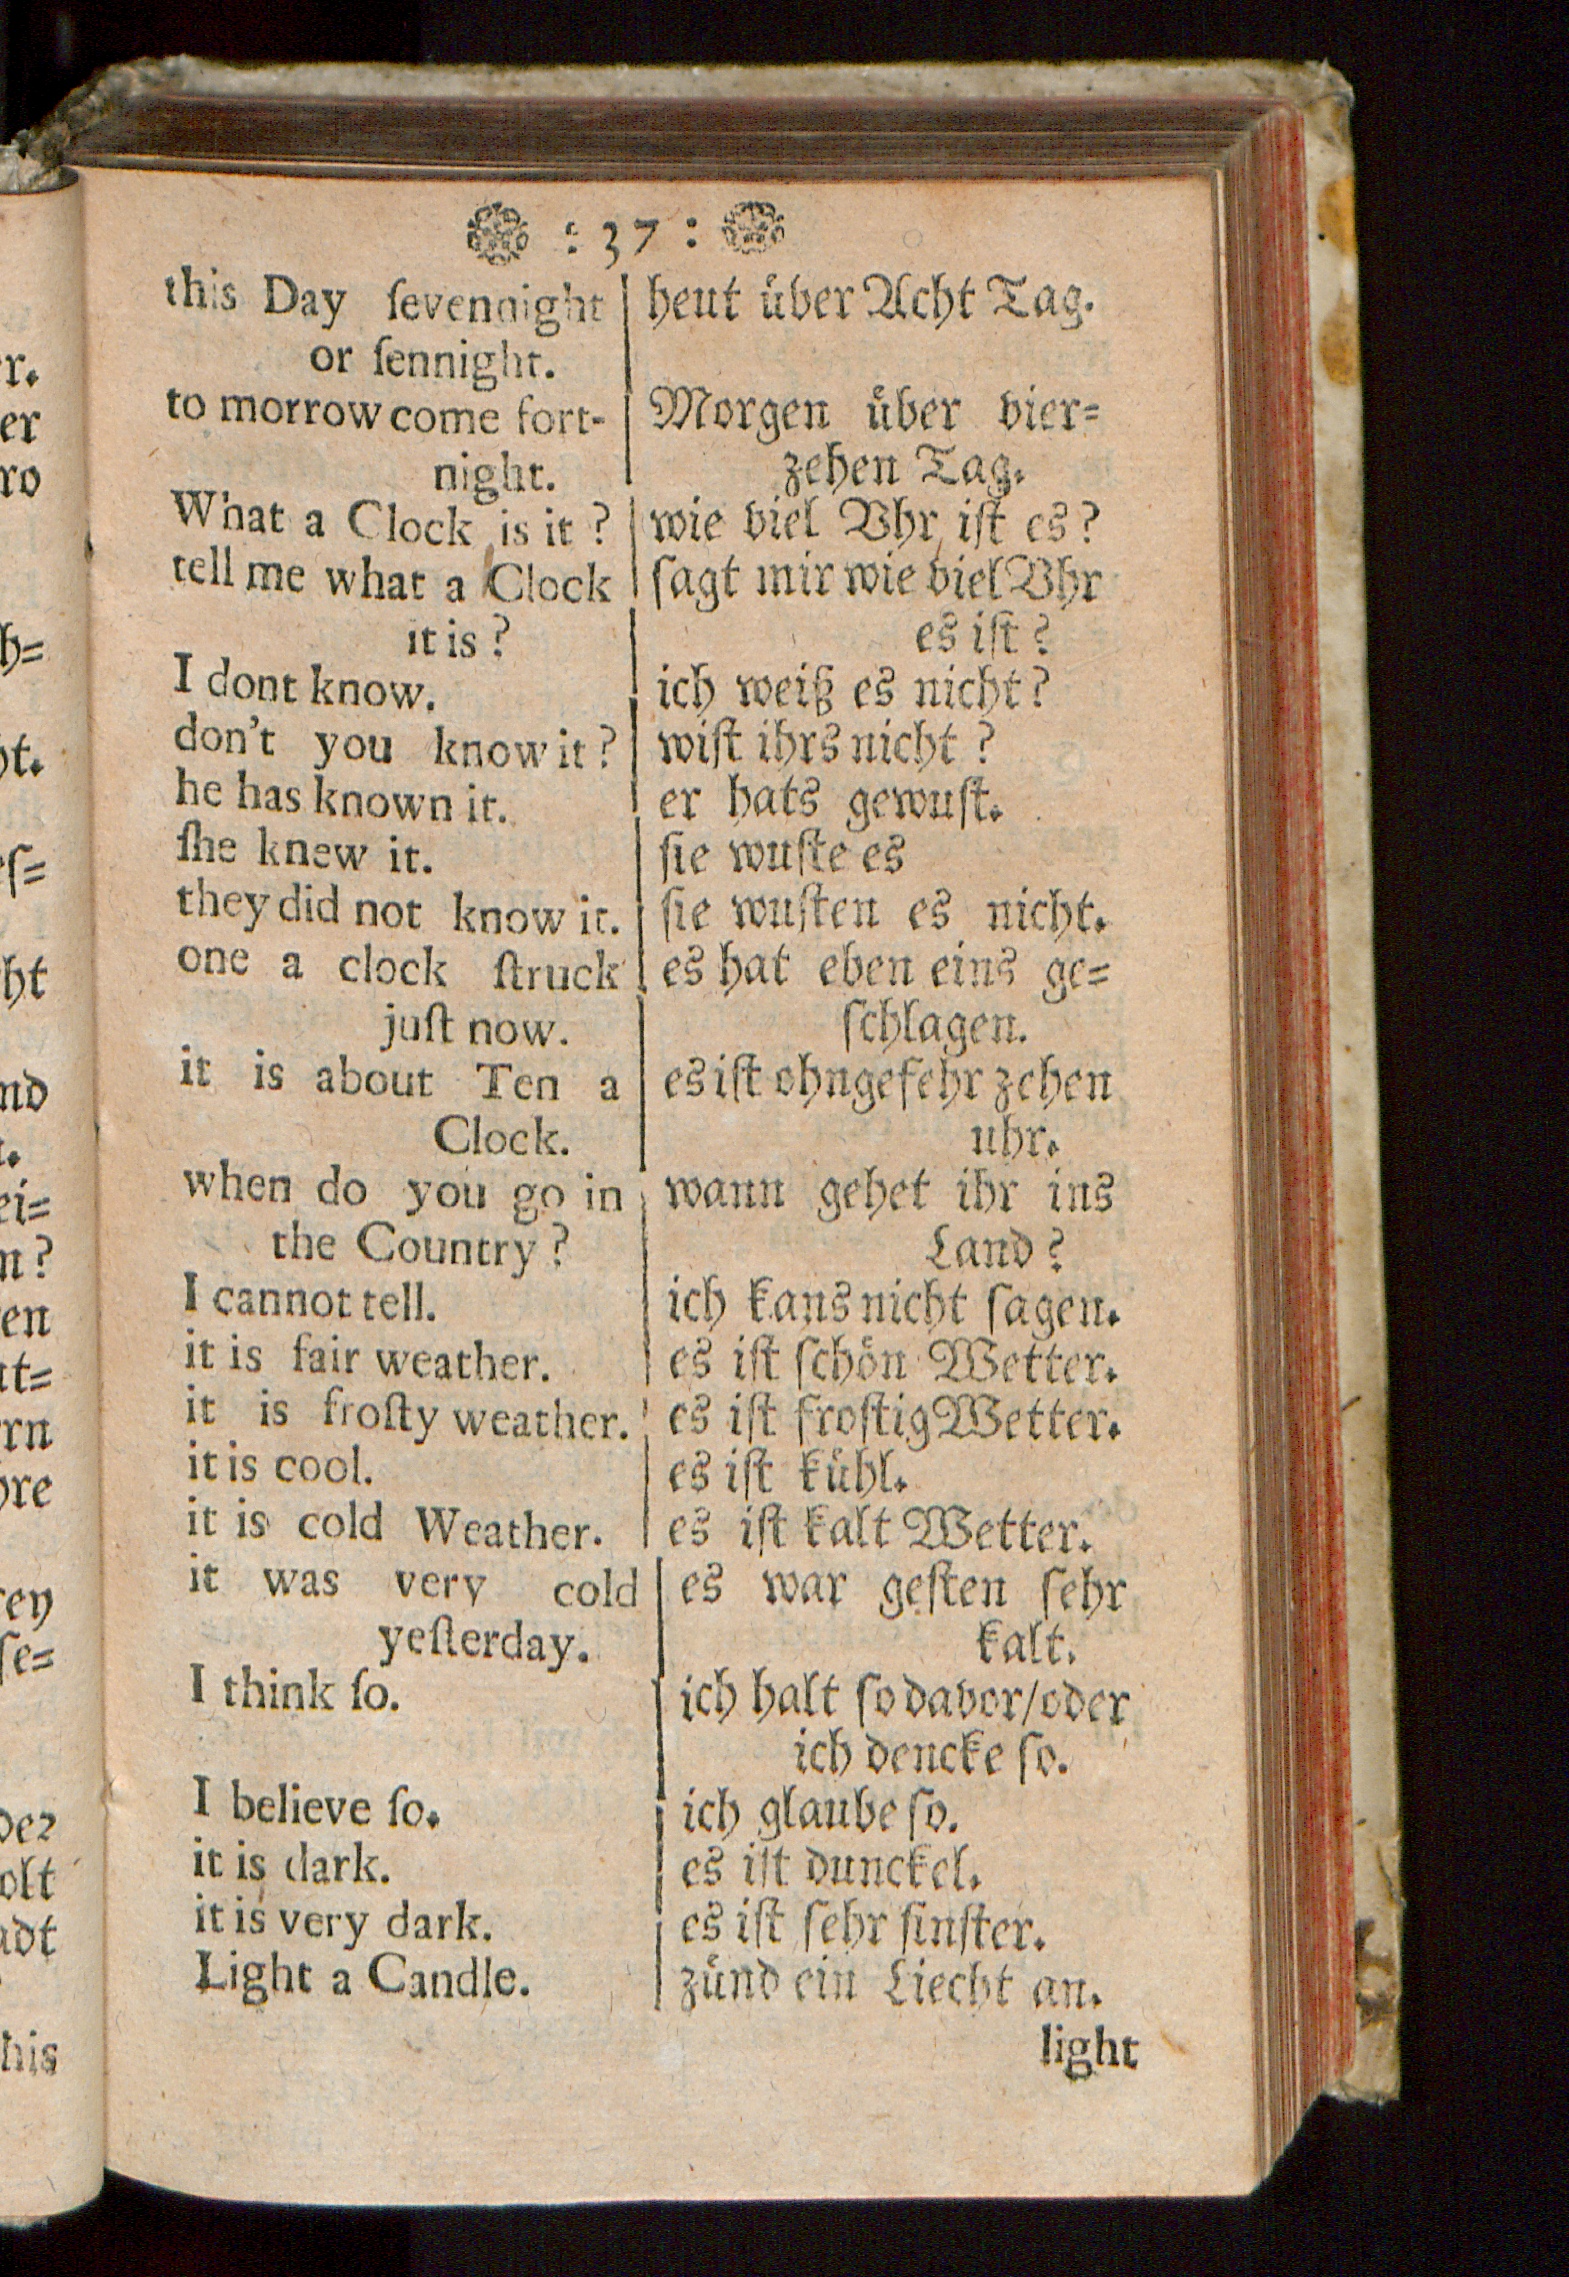 : 37 :
this Day ſevennight
or ſennight.
to morrow come fort-
night.
What a Clock is it?
tell me what a Clock
it is?
I dont know.
don't you know it?
he has known it.
ſhe knew it.
they did not know it.
one a clock ſtruck
juſt now.
it is about Ten a
Clock.
when do you go in
the Country?
I cannot tell.
it is fair weather.
it is froſty weather.
it is cool.
it is cold Weather.
it was very cold
yeſterday.
I think ſo.
I believe ſo.
it is dark.
it is very dark.
Light a Candle.
heut über Acht Tag.
Morgen über vier=
zehen Tag.
wie viel Vhr iſt es?
ſagt mir wie viel Vhr
es iſt?
ich weiß es nicht?
wiſt ihrs nicht?
er hats gewuſt.
ſie wuſte es
ſie wuſten es nicht.
es hat eben eins ge=
ſchlagen.
es iſt ohngefehr zehen
uhr.
wann gehet ihr ins
Land?
ich kans nicht ſagen.
es iſt ſchön Wetter.
es iſt froſtig Wetter.
es iſt kühl.
es iſt kalt Wetter.
es war geſten ſehr
kalt.
ich halt ſo davor/oder
ich dencke ſo.
ich glaube ſo.
es iſt dunckel.
es iſt ſehr finſter.
zünd ein Liecht an.
light